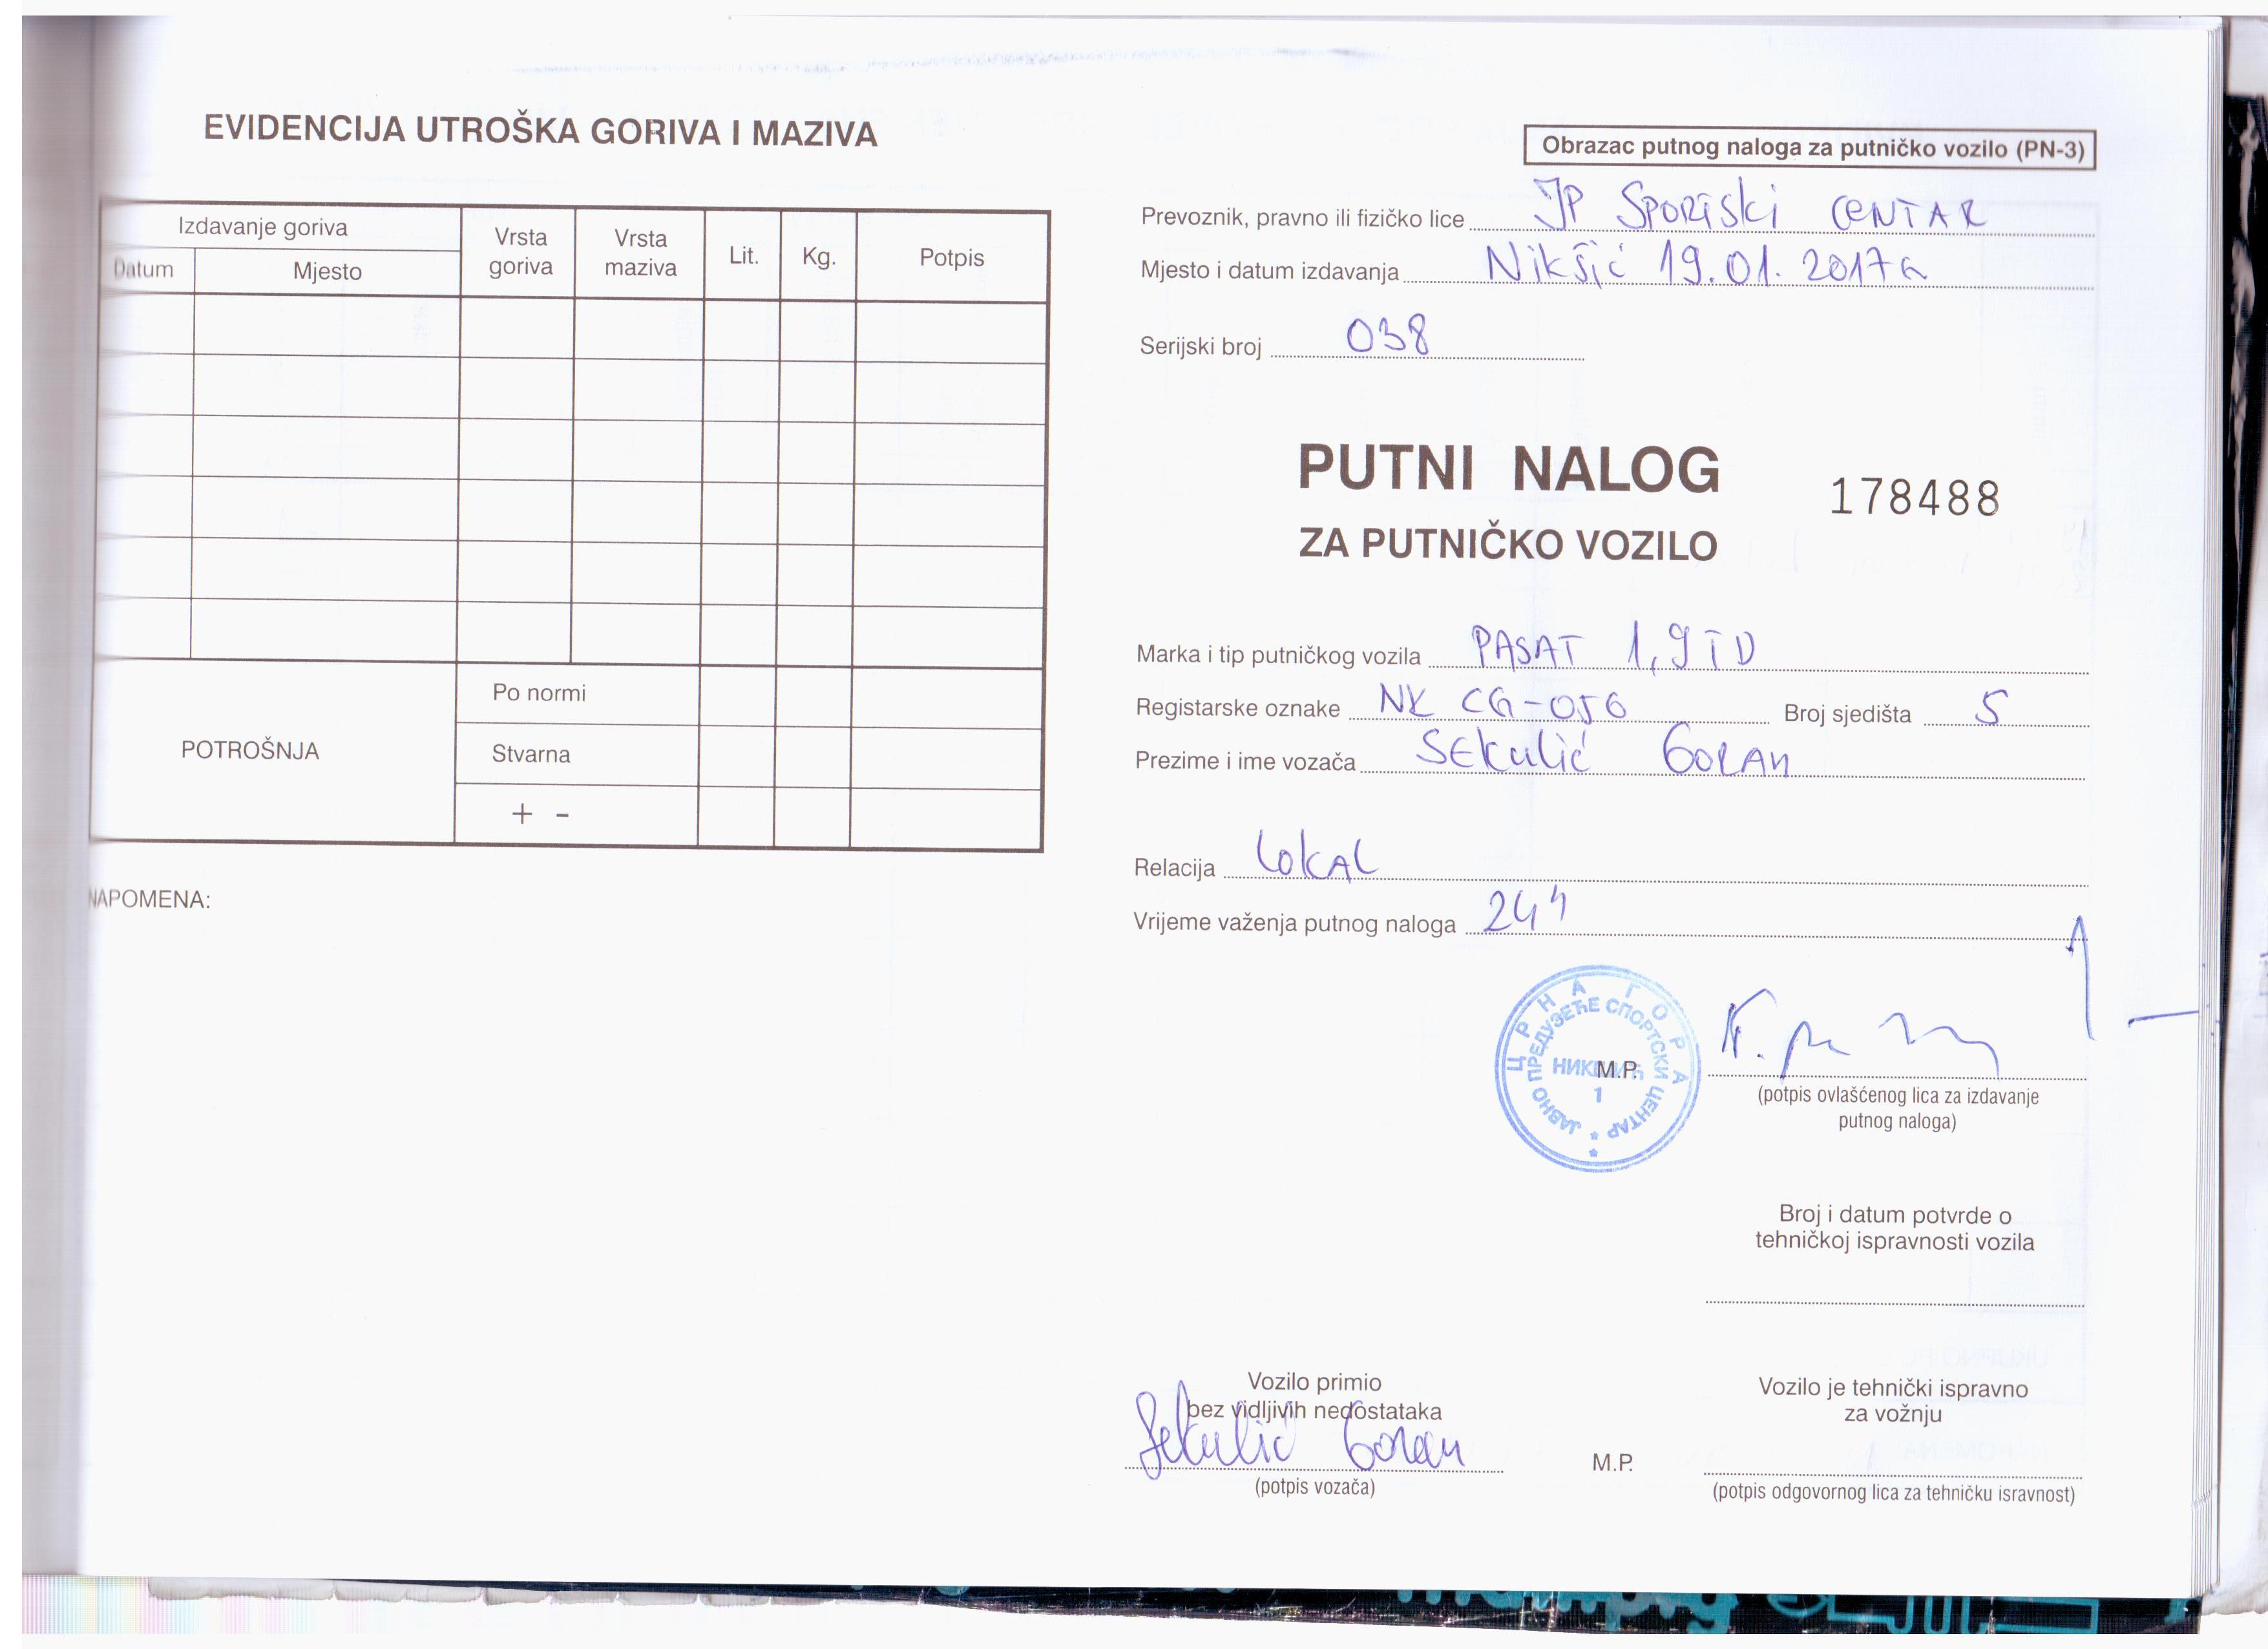 EVIDENCIJA UTROŠKA GORIVA I MAZIVA
Izdavanje goriva
Datum
Mjesto
Vrsta goriva
Vrsta maziva
Lit.
Kg.
Potpis
POTROŠNJA
Po normi
Stvarna
+ -
NAPOMENA:
Obrazac putnog naloga za putničko vozilo (PN-3)
Prevoznik, pravno ili fizičko lice JP SPORTSKI CENTAR
Mjesto i datum izdavanja Nikšić 19.01.2017G
Serijski broj 038
PUTNI NALOG
178488
ZA PUTNIČKO VOZILO
Marka i tip putničkog vozila PASAT 1,9 TD
Registarske oznake NK CG-056 Broj sjedišta 5
Prezime i ime vozača SEKULIĆ GORAN
Relacija LOKAL
Vrijeme važenja putnog naloga 24h
ЦРНА ГОРА
ЈАВНО ПРЕДУЗЕЋЕ СПОРТСКИ ЦЕНТАР
НИКШИЋ
1
M.P.
(potpis ovlašćenog lica za izdavanje
putnog naloga)
Broj i datum potvrde o
tehničkoj ispravnosti vozila
Vozilo primio
bez vidljivih nedostataka
Sekulić Goran
(potpis vozača)
M.P.
Vozilo je tehnički ispravno
za vožnju
(potpis odgovornog lica za tehničku isravnost)